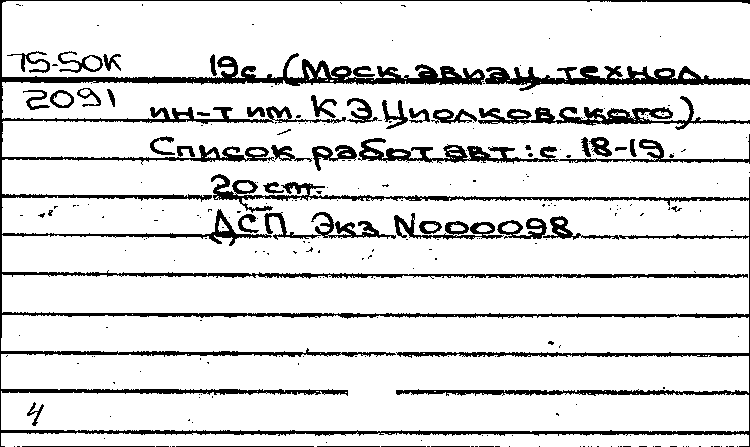 75-50К 19с. (Моск. авиац. технол.
2091 ин-т им. К.Э.Циолковского).
Список работ авт: с. 18-19.
20 cm.
ДСП. Экз N000098.
4